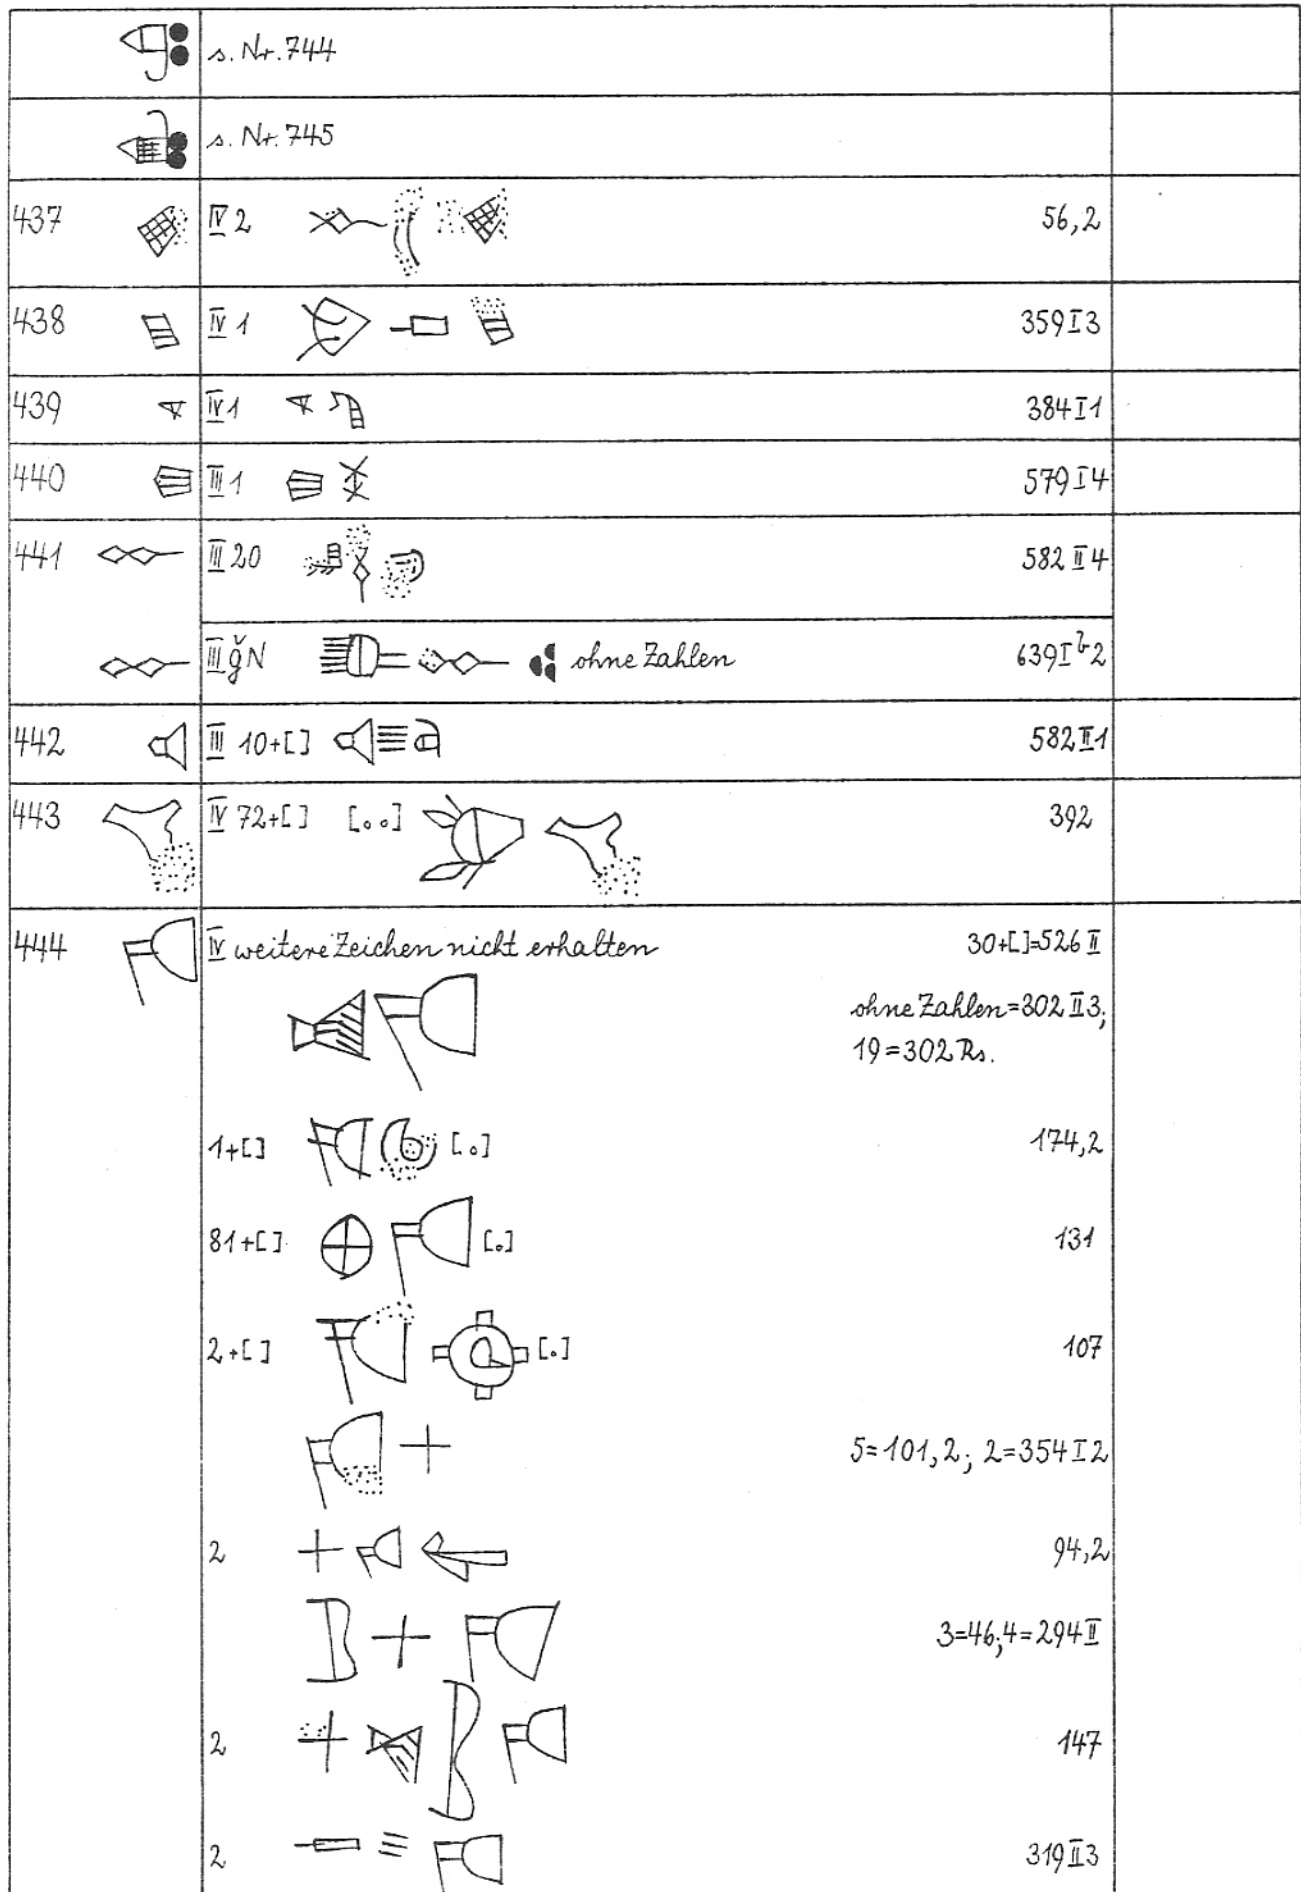 s. Nr. 744
s. Nr. 745
437 IV 2 56,2
438 IV 1 359 I 3
439 IV 1 384 I 1
440 III 1 579 I 4
441 III 20 582 II 4
III ǧN ohne Zahlen 639 I b 2
442 III 10+[ ] 582 II 1
443 IV 72+[ ] [..] 392
444 IV weitere Zeichen nicht erhalten 30+[ ]=526 II
ohne Zahlen=302 II 3;
19=302 Rs.
1+[ ] [.] 174,2
81+[ ] [.] 131
2+[ ] [.] 107
5=101,2; 2=354 I 2
2 94,2
3=46; 4=294 II
2 147
2 319 II 3